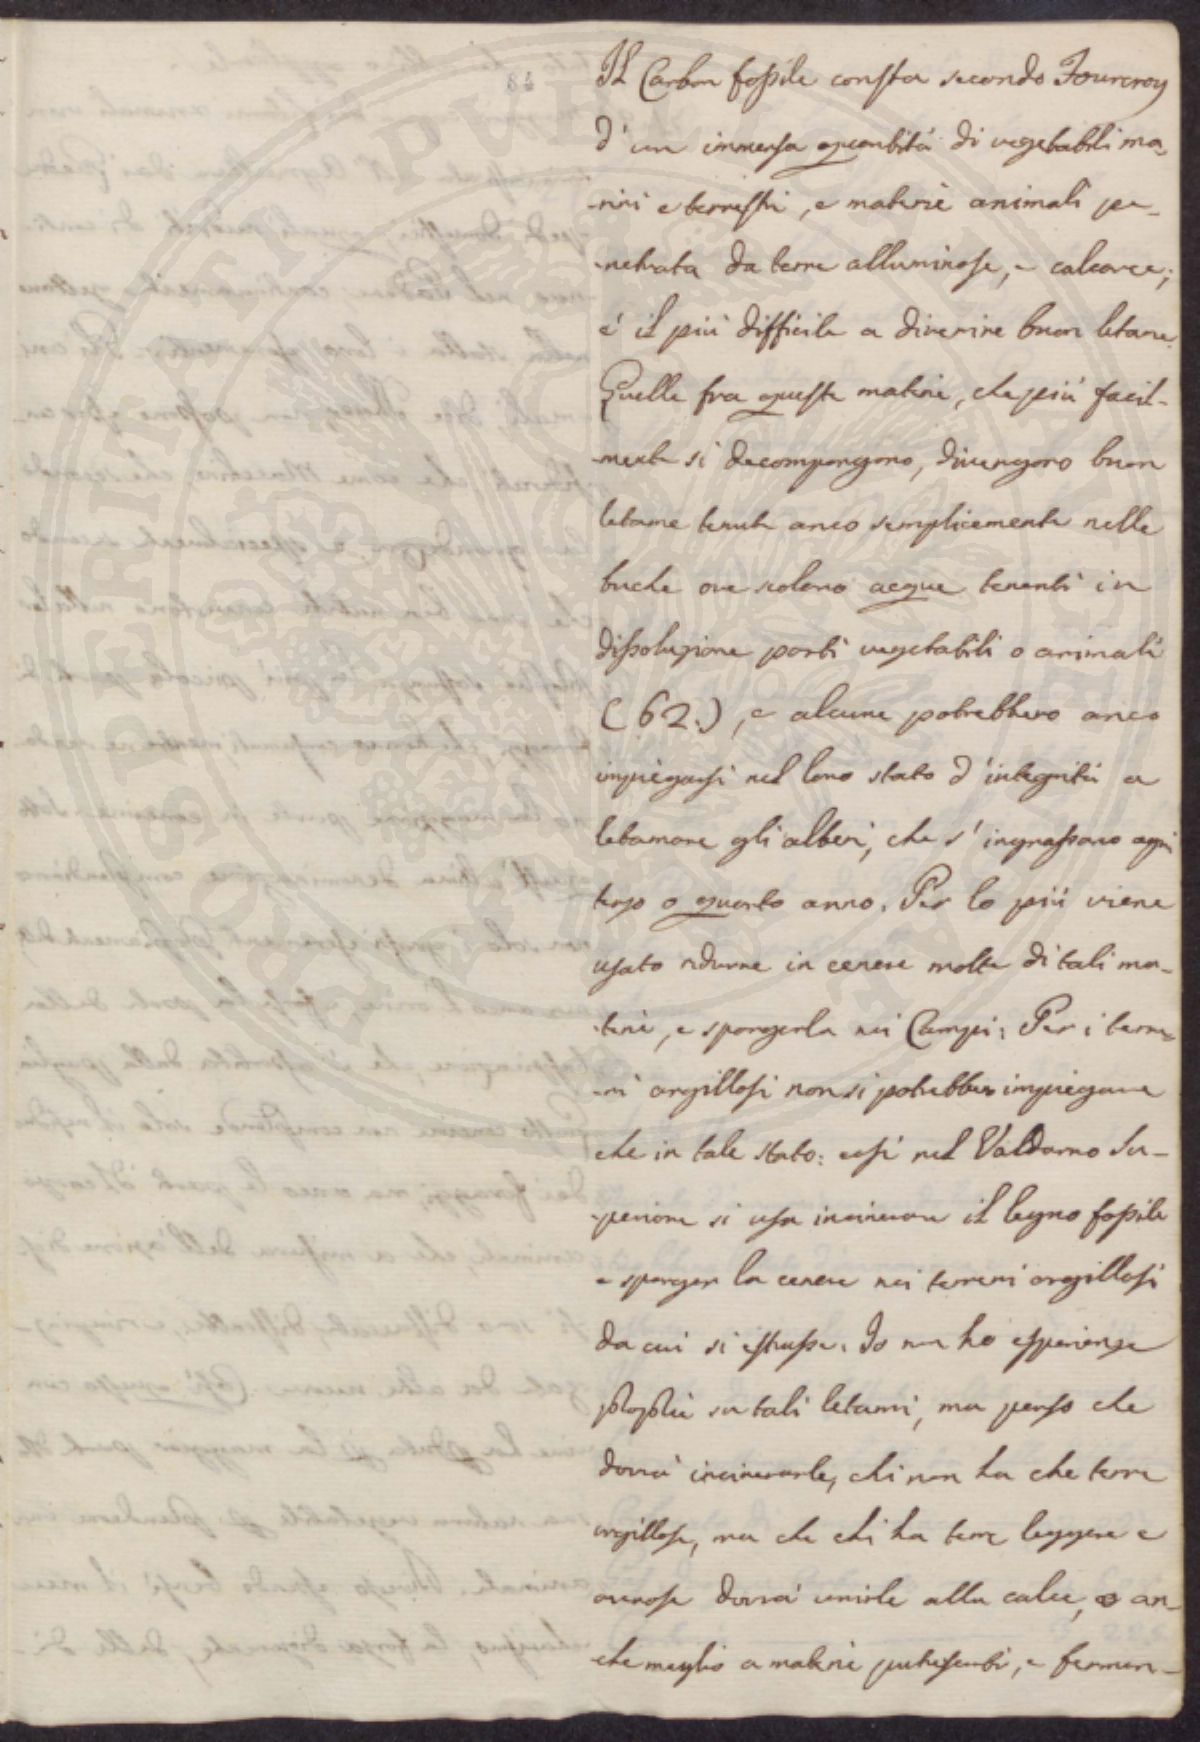 84
Il Carbon fossile consta secondo Fourcroy
d'un immensa quantità di vegetabili ma-
-rini e terrestri, e materie animali pe-
-netrata da terre alluminose, e calcaree;
é il più difficile a divenire buon letame.
Quelle fra queste materie, che più facil-
-mente si decompongono, divengono buon
letame tenute anco semplicemente nelle
buche ove scolano acque tenenti in
dissoluzione parti vegetabili o animali
(62.), e alcune potrebbero anco
impiegarsi nel loro stato d'integrità a
letamare gli alberi, che s'ingrassano ogni
terzo o quarto anno. Per lo più viene
usato ridurre in cenere molte di tali ma-
-terie, e spargerla nei Campi: Per i terre-
-ni argillosi non si potrebbero impiegare
che in tale stato: così nel Valdarno Su-
-periore si usa incinerare il legno fossile
e sparger la cenere nei terreni argillosi
da cui si estrusse. Io non ho esperienze
proprie su tali letami, ma penso che
dovrà incinerarle, chi non ha che terre
argillose, ma che chi ha terre leggere e
arenose dovrà unirle alla calce, o an-
-che meglio a materie putrescenti, e fermen-